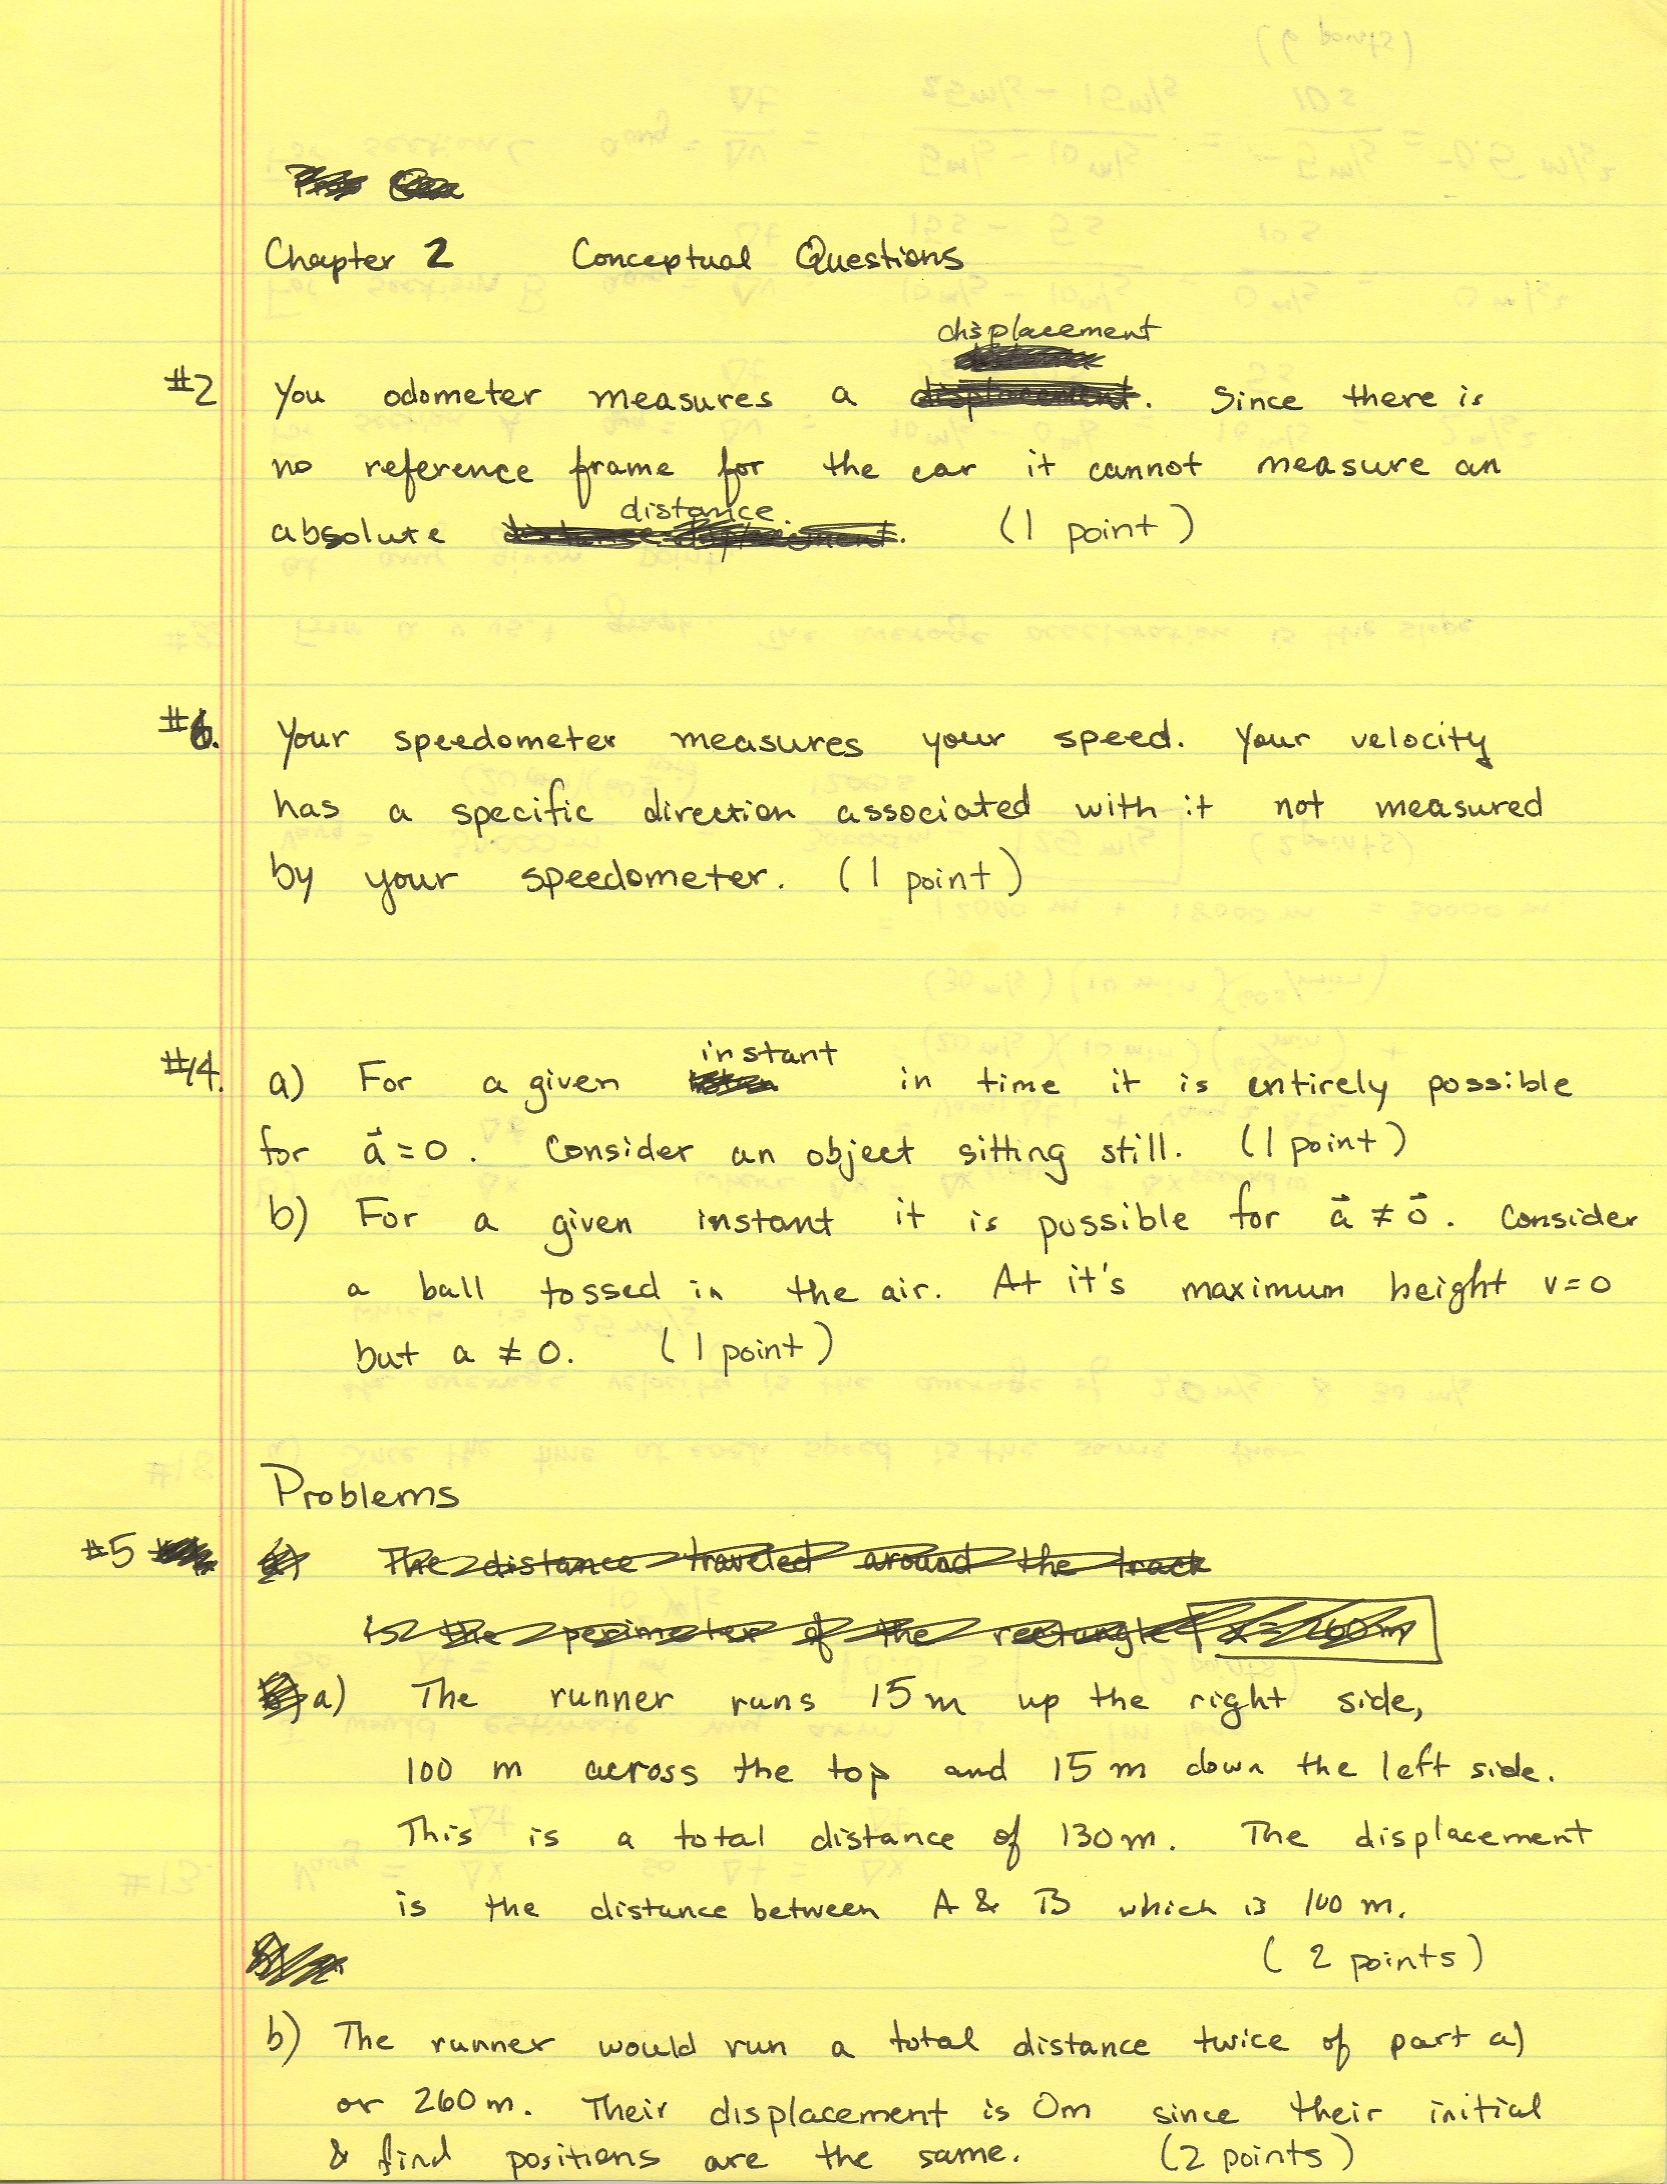 Chapter 2 Conceptual Questions
displacement
#2 You odometer measures a displacement. Since there is
no reference frame for the car it cannot measure an
distance.
absolute distance displacement. (1 point)
#6. Your speedometer measures your speed. Your velocity
has a specific direction associated with it not measured
by your speedometer. (1 point)
instant
#14. a) For a given in time it is entirely possible
for a⃗ = 0. Consider an object sitting still. (1 point)
b) For a given instant it is possible for a⃗ ≠ 0⃗. Consider
a ball tossed in the air. At it's maximum height v=0
but a ≠ 0. (1 point)
Problems
#5 The distance traveled around the track
is the perimeter of the rectangle x = 260m
a) The runner runs 15m up the right side,
100 m across the top and 15m down the left side.
This is a total distance of 130m. The displacement
is the distance between A & B which is 100 m.
(2 points)
b) The runner would run a total distance twice of part a)
or 260m. Their displacement is 0m since their initial
& find positions are the same. (2 points)